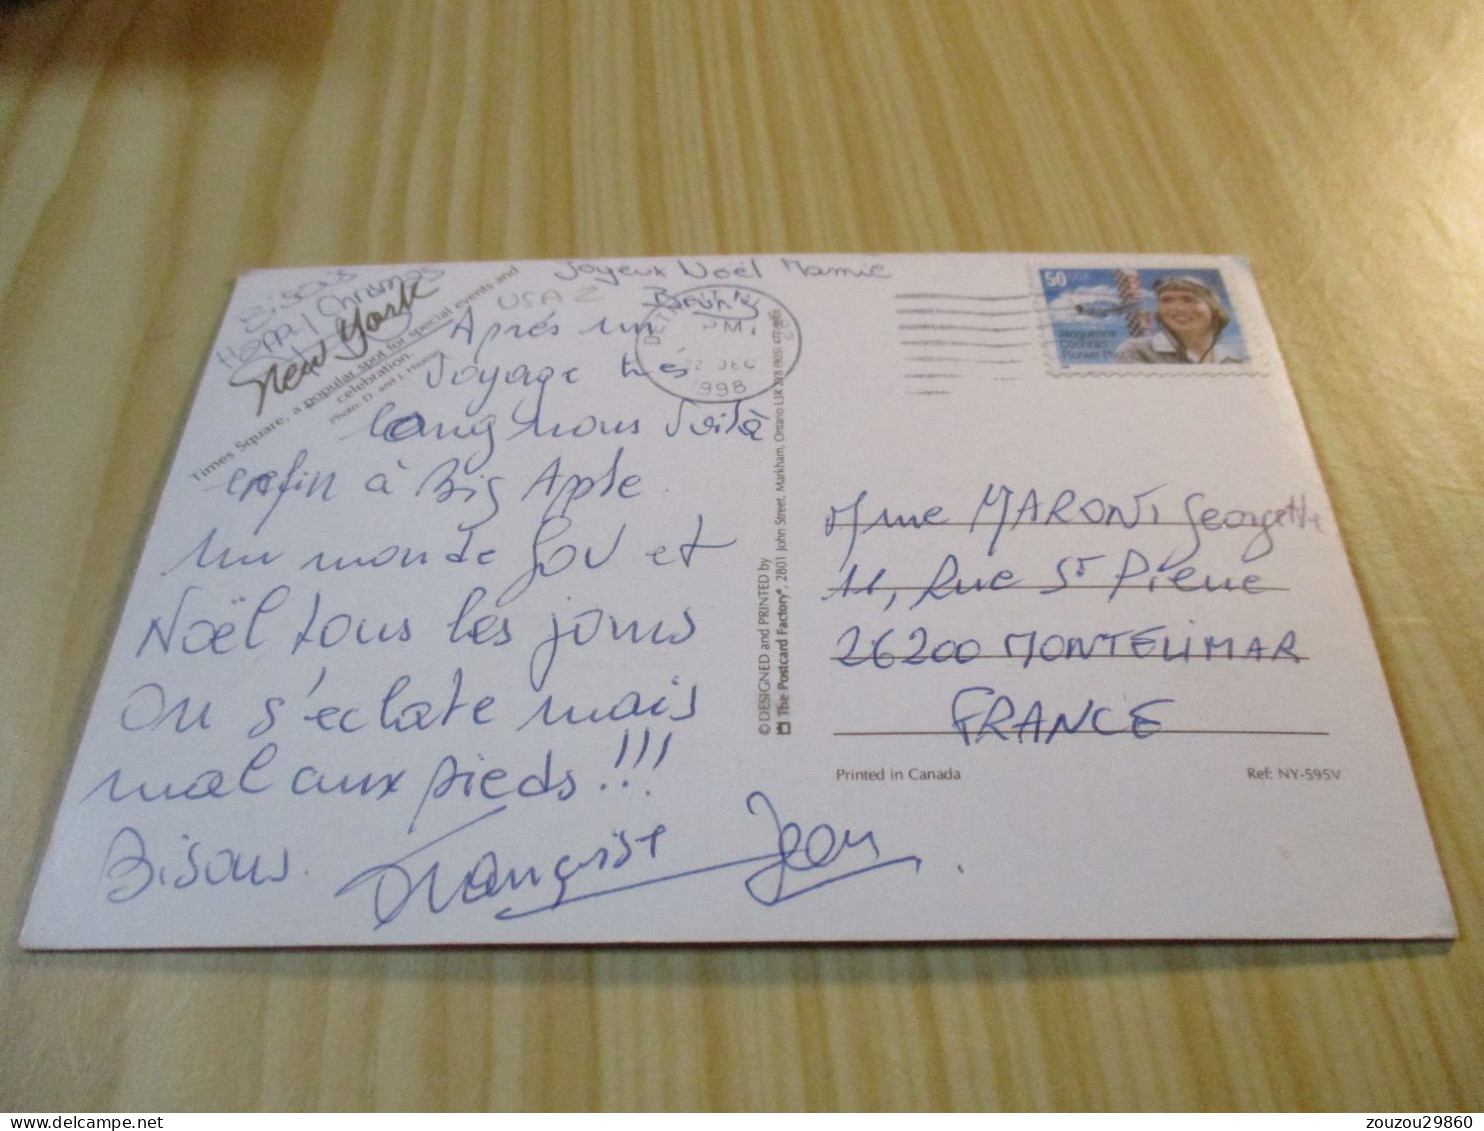 Joyeux Noël Mamie
Bisous
Happy Christmas
New York
Times Square, a popular spot for special events and
celebration.
Photo: D. and J. Heaton
USA 2
Après un
voyage très
long nous voilà
enfin à Big Apple
un monde fou et
Noël tous les jours
on s'éclate mais
mal aux pieds!!!
Bisous. Françoise Jean
PM
22 DEC
1998
© DESIGNED and PRINTED by
The Postcard Factory®, 2801 John Street, Markham, Ontario L3R 2Y8 (905) 477-9901
50 USA
Jacqueline
Cochran
Pioneer Pilot
Mme MARONI Georgette
11, Rue St Pierre
26200 MONTELIMAR
FRANCE
Printed in Canada
Ref: NY-595V
zouzou29860